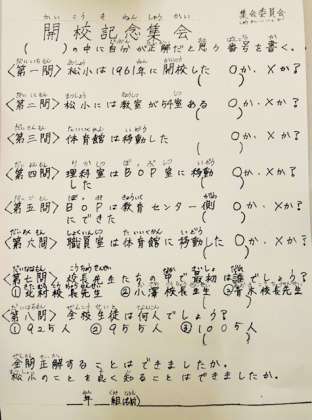 集会委員会
開校記念集会
(　　)の中に自分が正解だと思う番号を書く。
〈第一問〉松小は1961年に開校した　○か・×か?
(　　)
〈第二問〉松小には教室が54室ある　○か・×か?
(　　)
〈第三問〉体育館は移動した　○か・×か?
(　　)
〈第四問〉理科室はBOP室に移動　○か・×か?
した　(　　)
〈第五問〉BOPは教育センター側　○か・×か?
にできた　(　　)
〈第六問〉職員室は体育館に移動した　○か・×か?
(　　)
〈第七問〉校長先生たちの中で最初は誰でしょう?
①北村校長先生　②小澤校長先生　③青木校長先生
〈第八問〉全校生徒は何人でしょう?
①925人　②955人　③1005人
全問正解することはできましたか。
松小のことを良く知ることはできましたか。
年　組(名前)